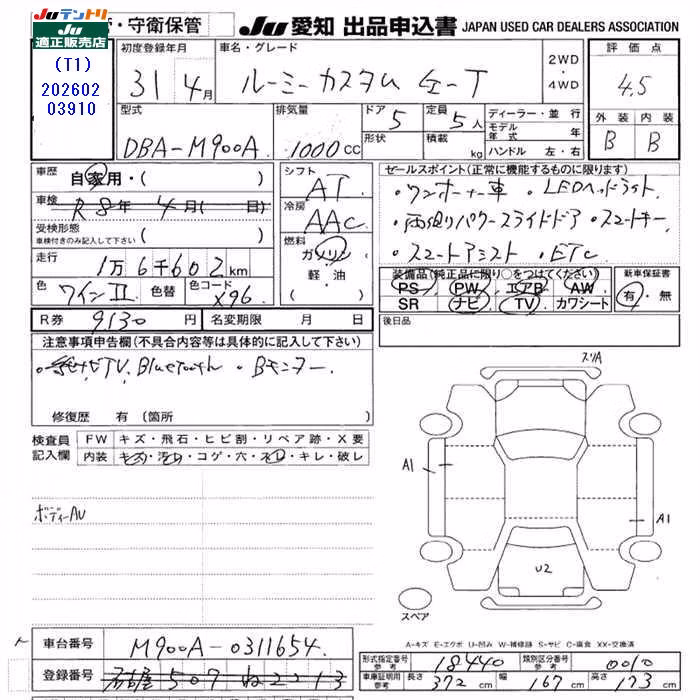 JUテントリ
JU 適正販売店
・守衛保管
JU 愛知 出品申込書 JAPAN USED CAR DEALERS ASSOCIATION
(T1)
202602
03910
初度登録年月
31 4月
車名・グレード
ルーミーカスタム G-T
2WD
・
4WD
評価点
4.5
外装 内装
B B
型式
DBA-M900A
排気量
1000cc
ドア 5
形状
定員 5人
積載 kg
ディーラー・並行
モデル年式 年
ハンドル 左・右
車歴
自家用・( )
車検
R8年 4月( 日)
受検形態
車検付きのみ記入して下さい ( )
走行
1万6千602km
色 ワインII 色替 色コード X96
シフト
AT
冷房
AAC
燃料
ガソリン
軽油
( )
セールスポイント(正常に機能するものに限ります)
・ワンオーナー車 ・LEDヘッドライト
・両側パワースライドドア ・スマートキー
・スマートアシスト ・ETC
装備品(純正品に限り○をつけてください)
PS PW エアB AW
SR ナビ TV カワシート
新車保証書
有・無
R券 9130円 名変期限 月 日
後日品
注意事項申告欄(不具合内容等は具体的に記入して下さい)
TV, Bluetooth ・Bモニター.
修復歴 有 (箇所 )
検査員記入欄
FW キズ・飛石・ヒビ割・リペア跡・X要
内装 キズ・汚レ・コゲ・穴・スレ・キレ・破レ
ボディーAU
スリA
A1
A1
U2
スペア
A-キズ E-エクボ U-凹み W-補修跡 S-サビ C-腐食 XX-交換済
車台番号 M900A-0311654
登録番号 名古屋 507 ね 2213
形式指定番号 参考 18440 類別区分番号 参考 0010
車庫証明用 参考 長さ 372cm 幅 167cm 高さ 173cm